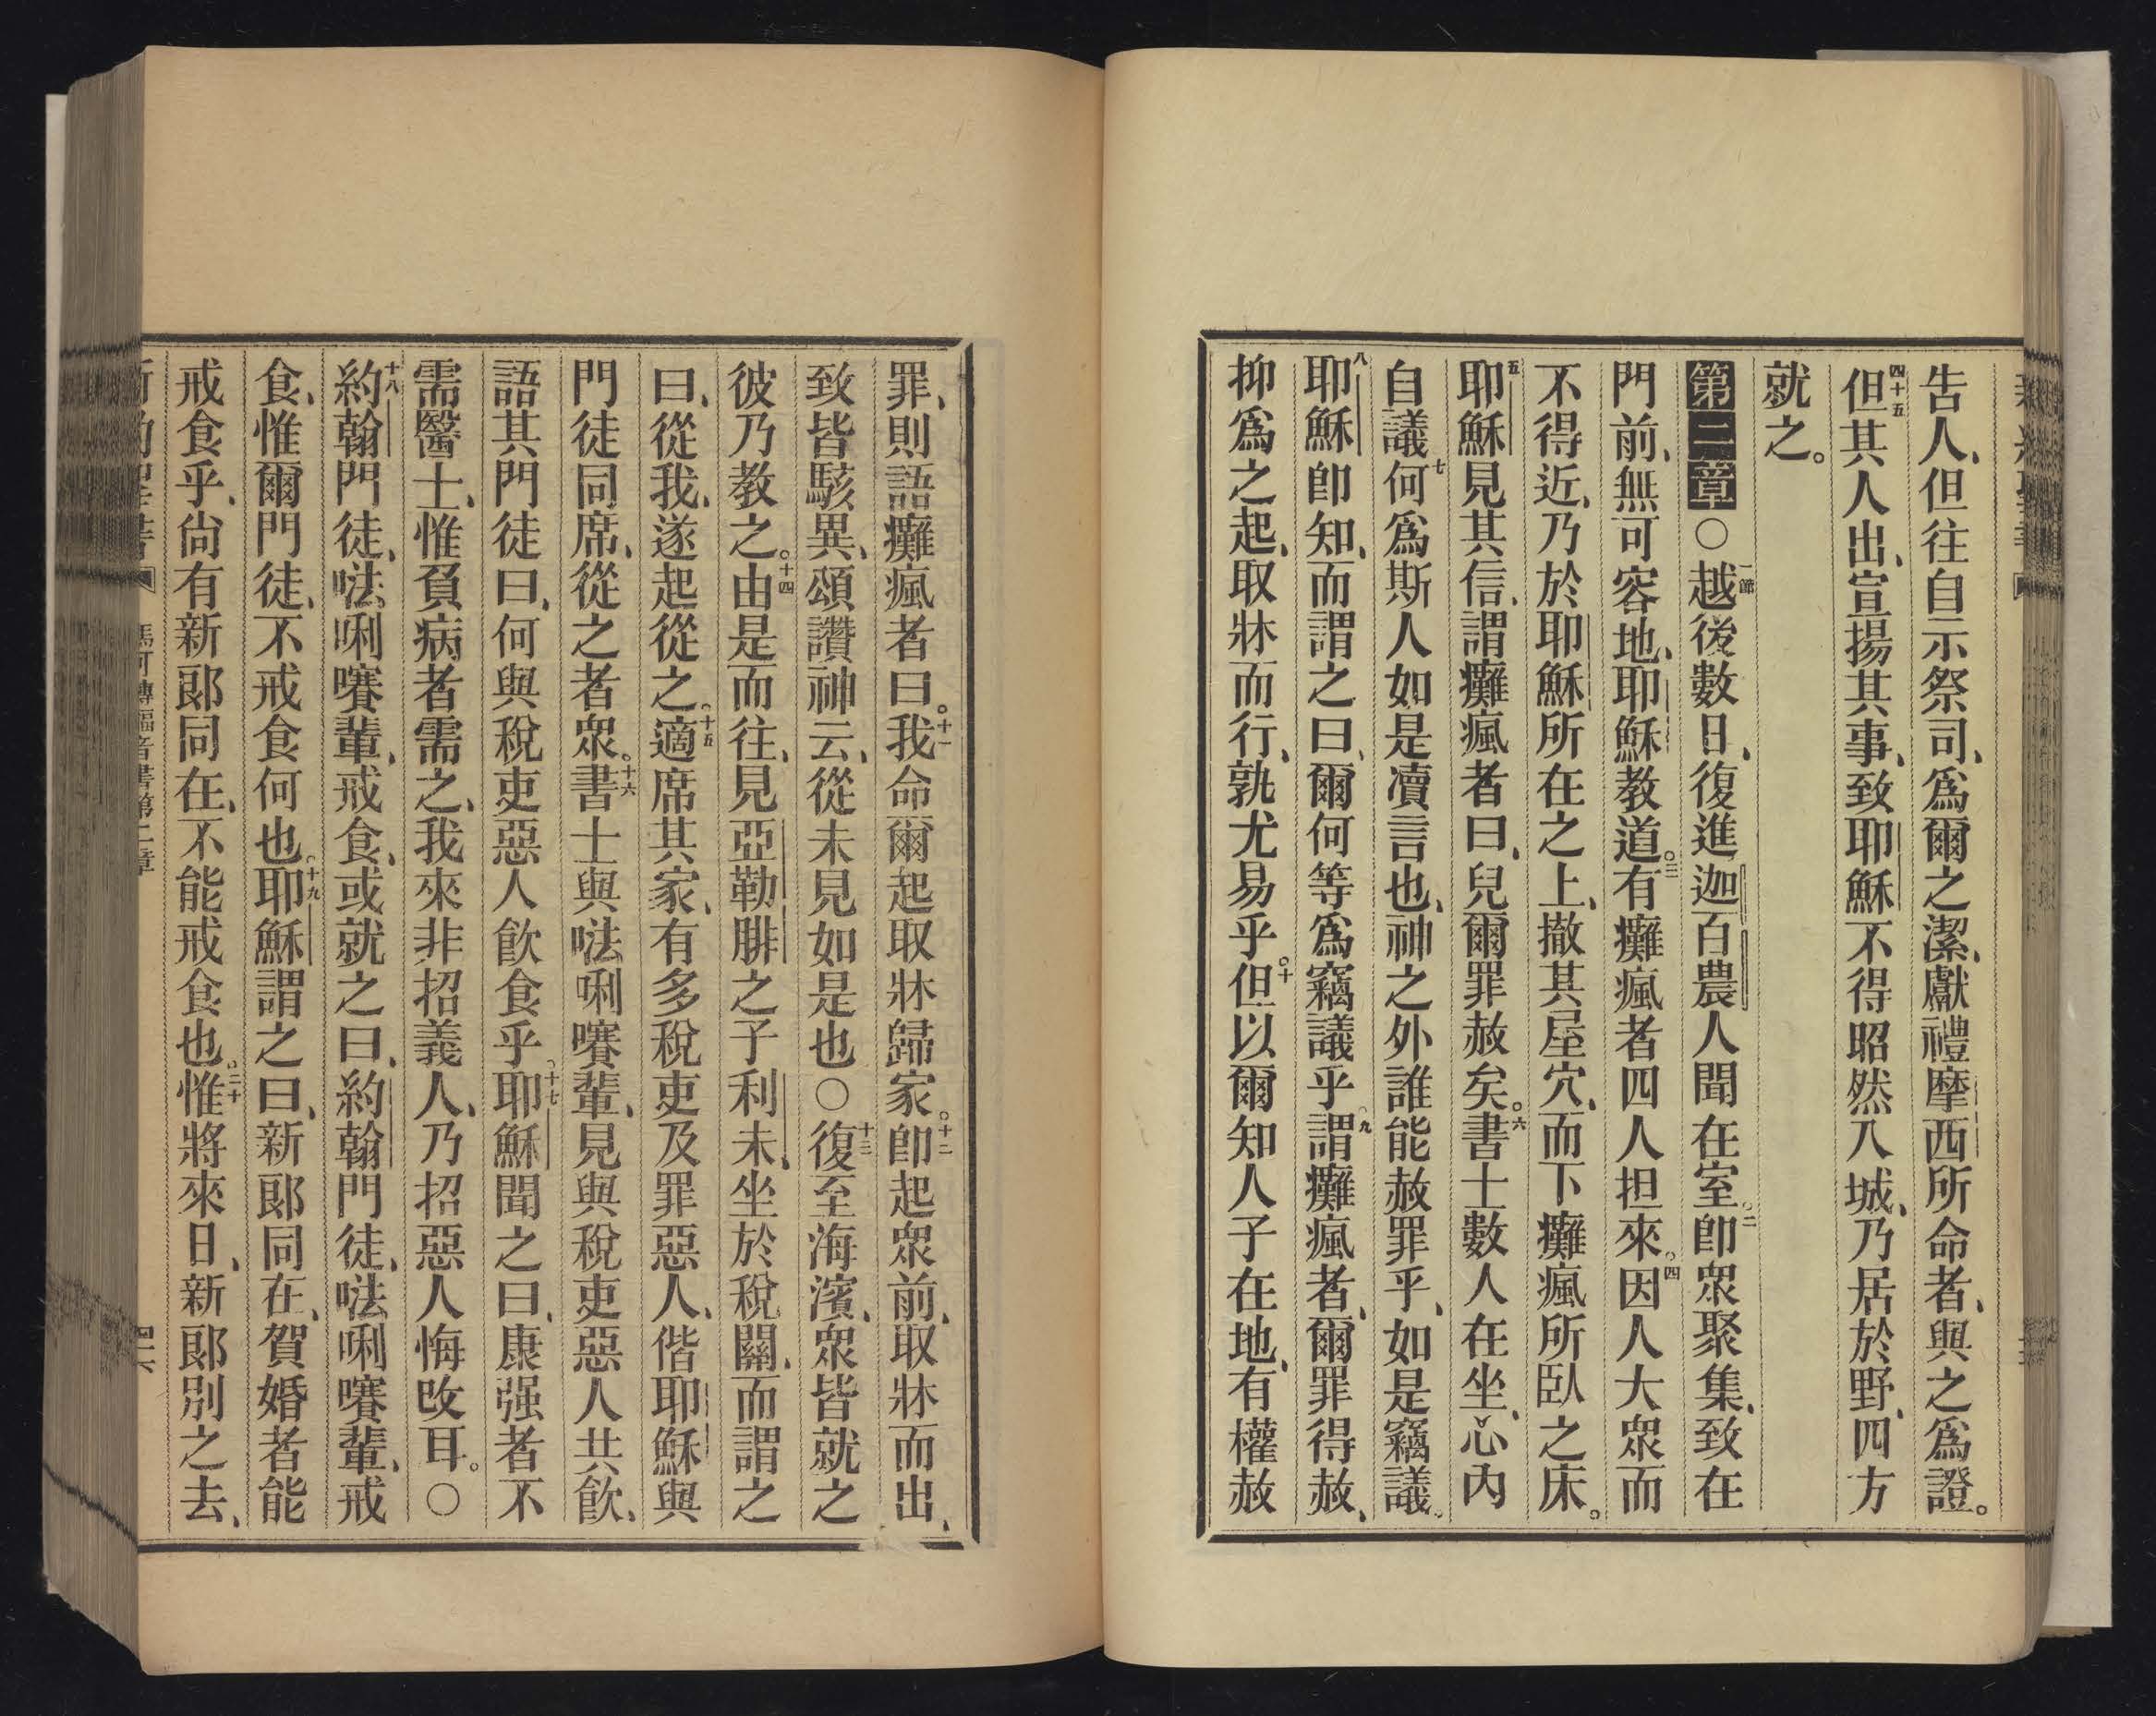 告人、但往自示祭司、爲爾之潔、獻禮摩西所命者、與之爲證。
四十五但其人出、宣揚其事、致耶穌不得昭然入城、乃居於野、四方
就之。
第二章○一節越後數日、復進迦百農人聞在室。二卽衆聚集、致在
門前、無可容地、耶穌教道。三有癱瘋者四人担來。四因人大衆而
不得近、乃於耶穌所在之上、撤其屋穴、而下癱瘋所臥之床。
五耶穌見其信、謂癱瘋者曰、兒爾罪赦矣。六書士數人在坐、心內
自議七何爲斯人如是凟言也、神之外誰能赦罪乎、如是竊議。
八耶穌卽知、而謂之曰、爾何等爲竊議乎。九謂癱瘋者、爾罪得赦、
抑爲之起、取牀而行、孰尤易乎。十但以爾知人子在地、有權赦
罪、則語癱瘋者曰。十一我命爾起取牀歸家。十二卽起衆前、取牀而出、
致皆駭異、頌讚神云、從未見如是也○十三復至海濱、衆皆就之
彼乃教之。十四由是而往、見亞勒腓之子利未、坐於稅關、而謂之
曰、從我、遂起從之。十五適席其家、有多稅吏及罪惡人、偕耶穌與
門徒同席、從之者衆。十六書士與㕸唎㘔輩、見與稅吏惡人共飲、
語其門徒曰、何與稅吏惡人飲食乎。十七耶穌聞之曰、康强者不
需醫士、惟負病者需之、我來非招義人、乃招惡人悔改耳。○
十八約翰門徒、㕸唎㘔輩、戒食、或就之曰、約翰門徒、㕸唎㘔輩、戒
食、惟爾門徒、不戒食何也。十九耶穌謂之曰、新郎同在、賀婚者能
戒食乎、尙有新郎同在、不能戒食也。二十惟將來日、新郎別之去、
新約聖書 馬可傳福音書第二章